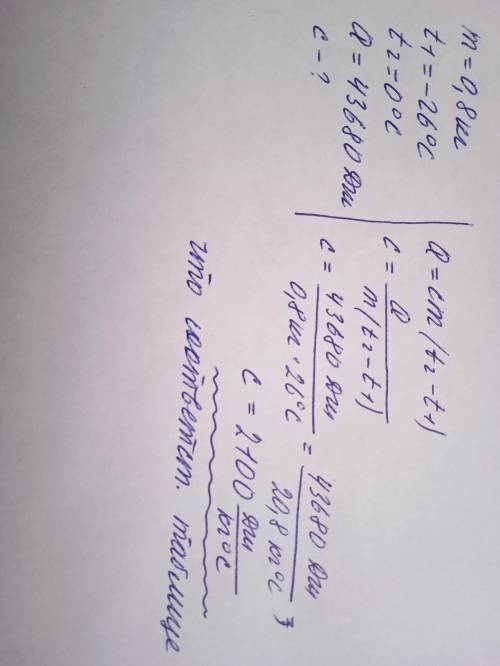 m = 0,8 кг
t₁ = -26°C
t₂ = 0°C
Q = 43680 Дж
c - ?
Q = cm(t₂ - t₁)
c = Q / m(t₂ - t₁)
c = 43680 Дж / 0,8 кг · 26°C = 43680 Дж / 20,8 кг°C =
c = 2100 Дж / кг°C
что соответст. таблице